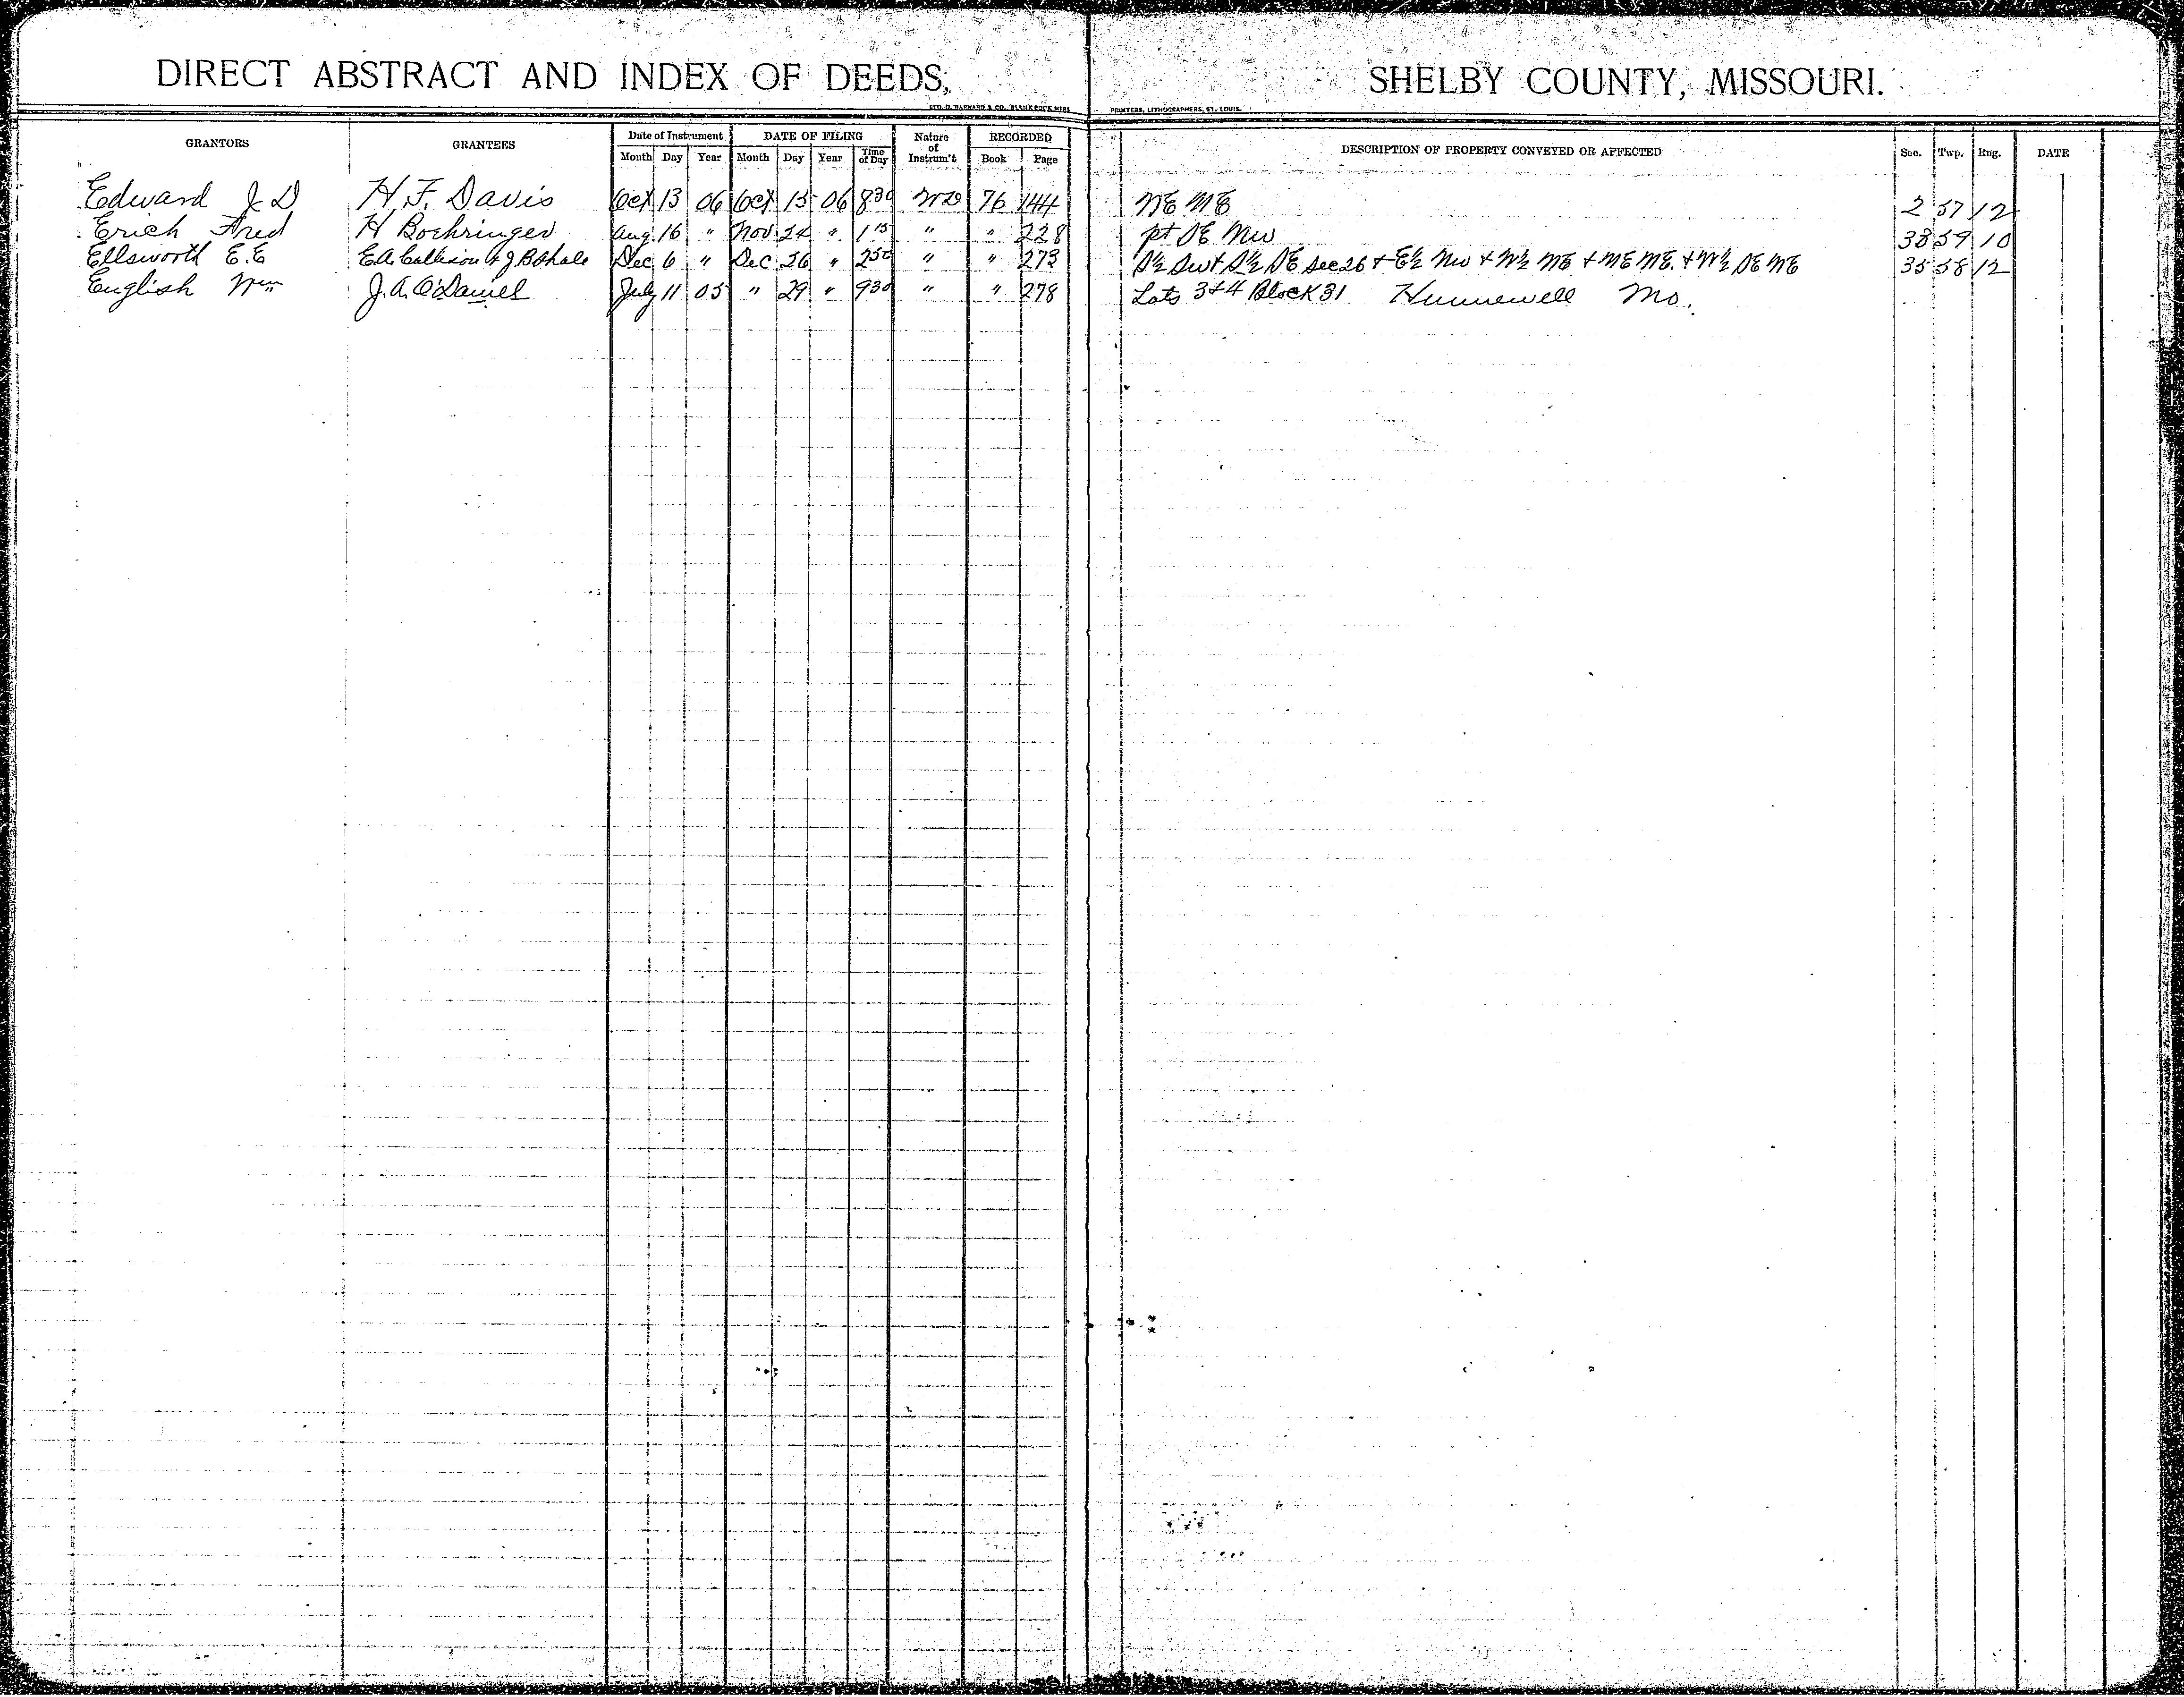 DIRECT ABSTRACT AND INDEX OF DEEDS, SHELBY COUNTY, MISSOURI.
GEO. D. BARNARD & CO. BLANK BOOK MFRS PRINTERS, LITHOGRAPHERS, ST. LOUIS.
GRANTORS GRANTEES Date of Instrument DATE OF FILING Nature of Instrum't RECORDED DESCRIPTION OF PROPERTY CONVEYED OR AFFECTED Sec. Twp. Rng. DATE
Month Day Year Month Day Year Time of Day Book Page
Edward J D H. F. Davis Oct 13 06 Oct 15 06 8 30 WD 76 144 NE NE 2 57 12
Erich Fred H Boehringer Aug. 16 " Nov 24 " 1 15 " " 228 pt SE NW 59 10
Ellsworth E. E E. A. & J B Shale Dec 6 " Dec 26 " 2 50 " " 273 S½ SW & S½ SE Sec 26 & E½ NW & W½ NE & NE NE. & W½ SE NE 35 58 12
English Wm J. A. O'Daniel July 11 05 " 29 " 9 30 " " 278 Lots 3 & 4 Block 31 Hunnewell Mo.